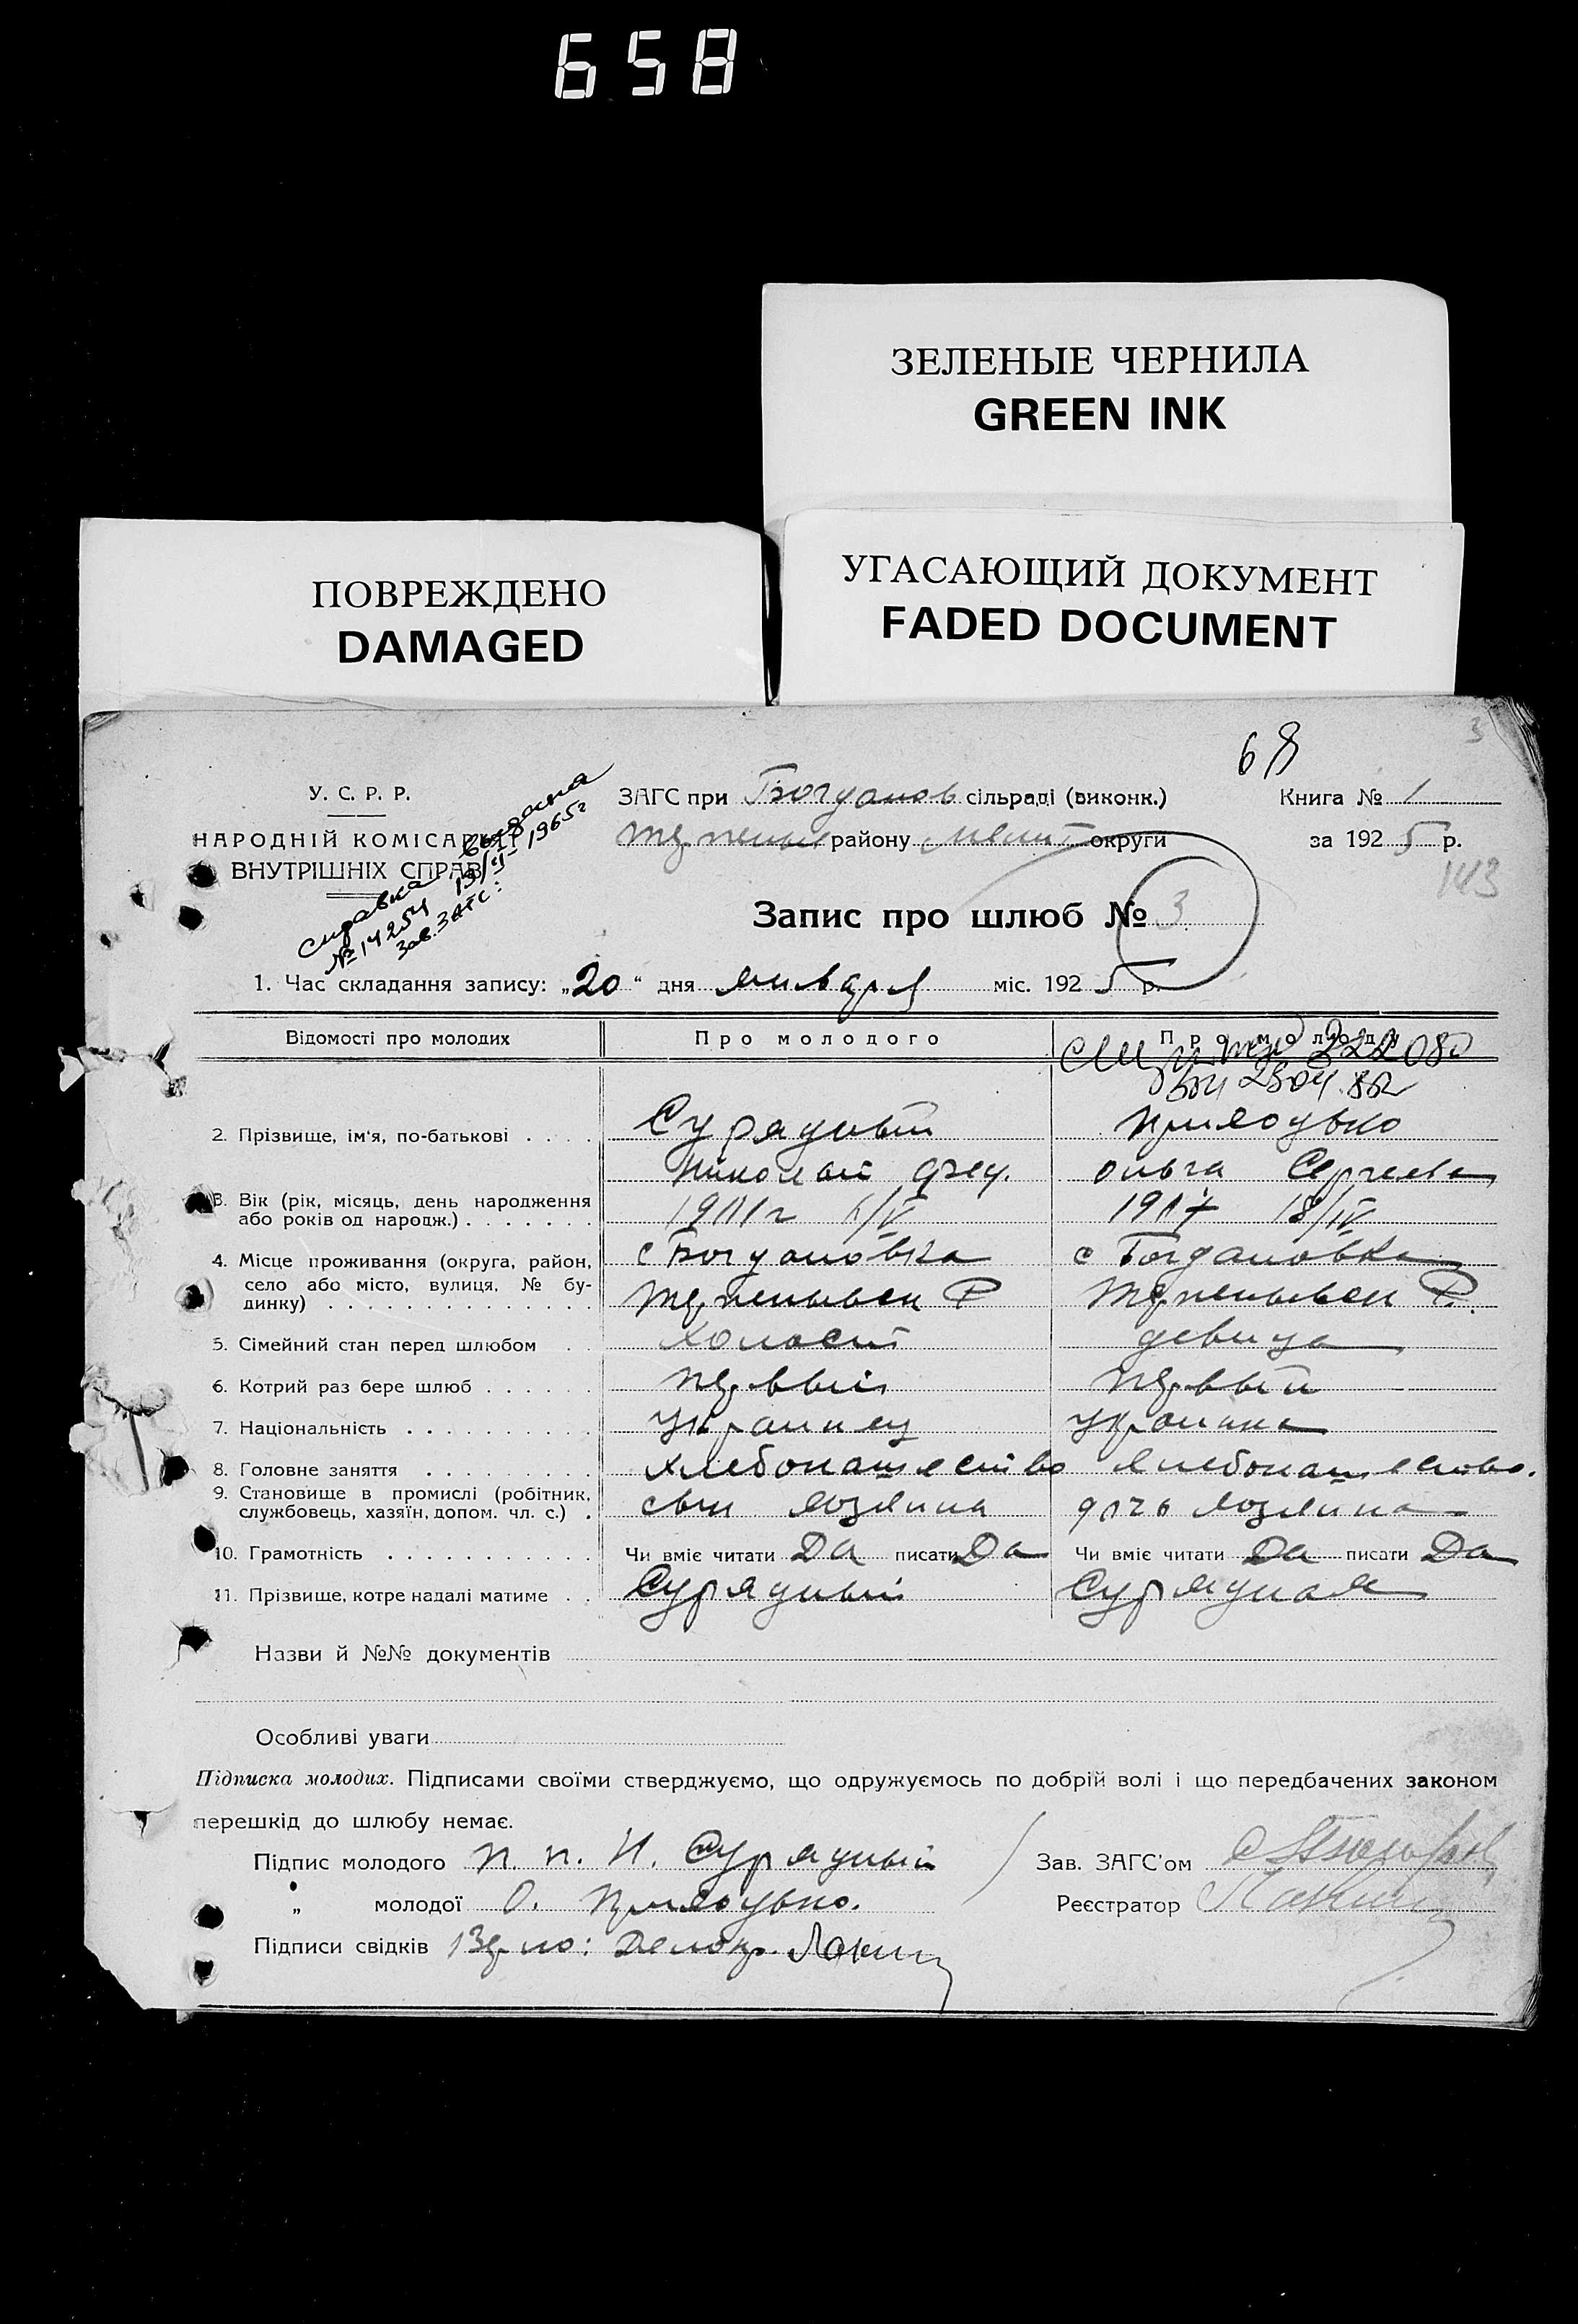 658
ЗЕЛЕНЫЕ ЧЕРНИЛА
GREEN INK
ПОВРЕЖДЕНО
DAMAGED
УГАСАЮЩИЙ ДОКУМЕНТ
FADED DOCUMENT
68
3
У. С. Р. Р.
НАРОДНІЙ КОМІСАРІЯТ
ВНУТРІШНІХ СПРАВ
справка выдана
№ 14254 1965г
Зав. ЗАГС:
ЗАГС при Богданов сільраді (виконк.)
району округи
Книга № 1
за 1925 р.
143
Запис про шлюб № 3
1. Час складання запису: „20“ дня января міс. 1925 р.
Відомості про молодих Про молодого Про молоду
2. Прізвище, ім‘я, по-батькові . . . . Сурядный
Николай Фед. Ольга Сергеевна
3. Вік (рік, місяць, день народження
або років од народж.) . . . . . . . 18/IV
4. Місце проживання (округа, район, с Богдановка с Богдановка
село або місто, вулиця, № бу-
динку) . . . . . . . . . . . . . .
5. Сімейний стан перед шлюбом . . холост девица
6. Котрий раз бере шлюб . . . . . . первый первый
7. Національність . . . . . . . . . . украинец украинка
8. Головне заняття . . . . . . . . . хлебопашество хлебопашество.
9. Становище в промислі (робітник,
службовець, хазяїн, допом. чл. с.) . сын хозяина дочь хозяина
10. Грамотність . . . . . . . . . . . Чи вміє читати Да писати Да Чи вміє читати Да писати Да
11. Прізвище, котре надалі матиме . . Сурядный Сурядная
Назви й №№ документів
Особливі уваги
Підписка молодих. Підписами своїми стверджуємо, що одружуємось по добрій волі і що передбачених законом
перешкід до шлюбу немає.
Підпис молодого п. п. Н. Сурядный
Зав. ЗАГС'ом
„ молодої О.
Реєстратор
Підписи свідків Верно: Делопр.